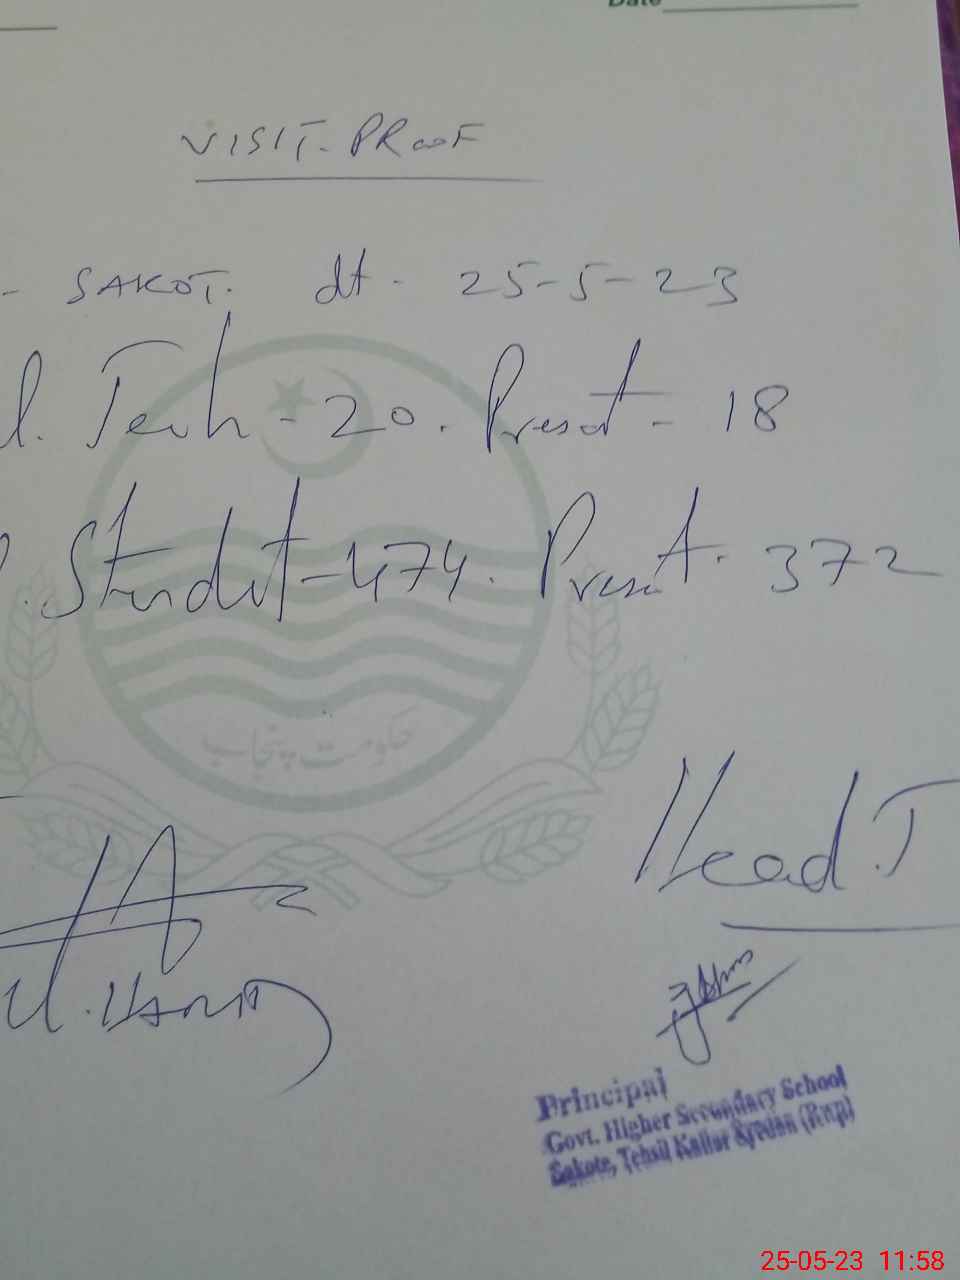 Date
VISIT. PROOF
- SAKOT. dt. 25-5-23
l. Teah - 20. Presat - 18
l. Studet - 474. Present. 372
حکومت پنجاب
Head.T
Principal
Govt. Higher Secondary School
Sakote, Tehsil Kallar Syedan (Rwp)
25-05-23 11:58